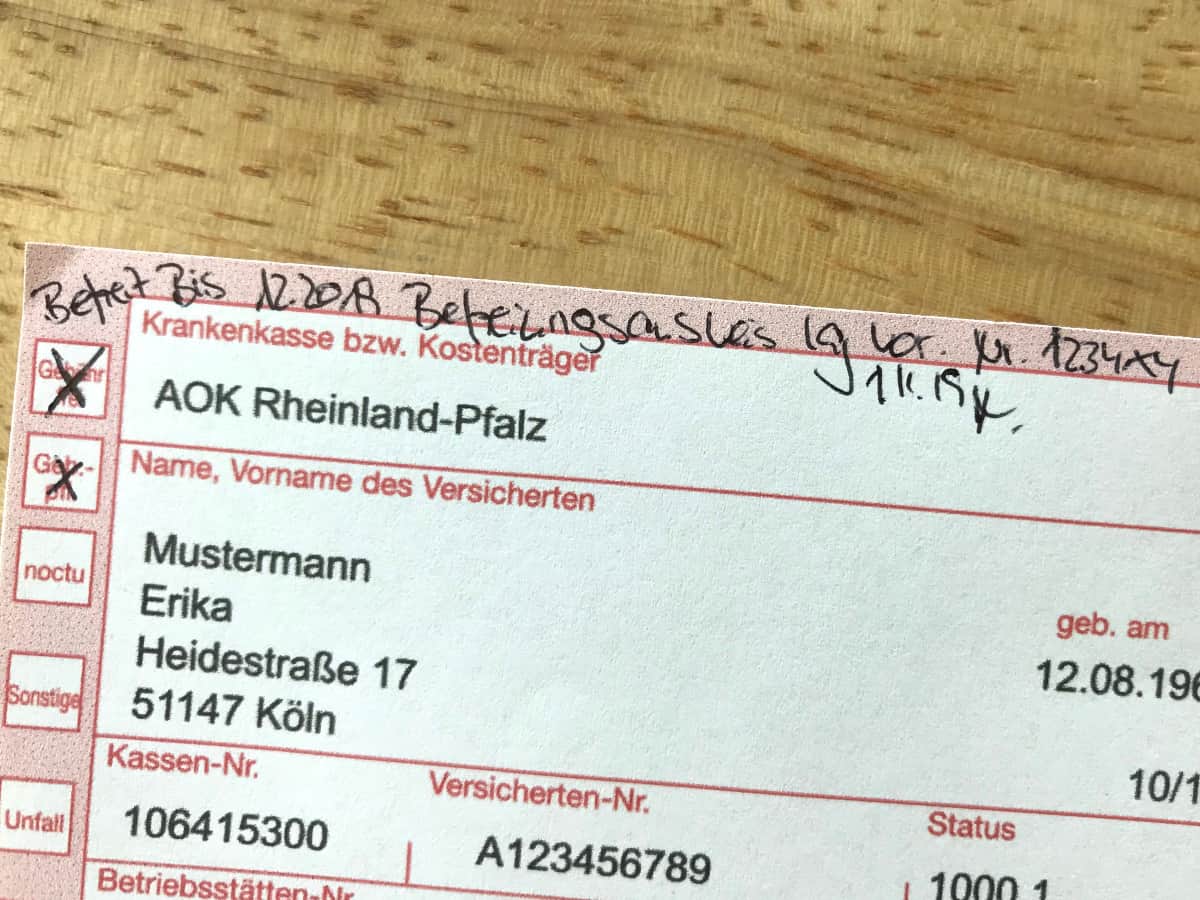 Befreit Bis 12.2018 Befreiungsausweis lag vor. Nr. 1234xy
Krankenkasse bzw. Kostenträger
AOK Rheinland-Pfalz
Geb.-
Name, Vorname des Versicherten
Mustermann
Erika
noctu
Heidestraße 17
geb. am
51147 Köln
12.08.196
Sonstige
Kassen-Nr.
Versicherten-Nr.
10/1
Unfall
106415300
A123456789
Status
1000 1
Betriebsstätten-Nr.